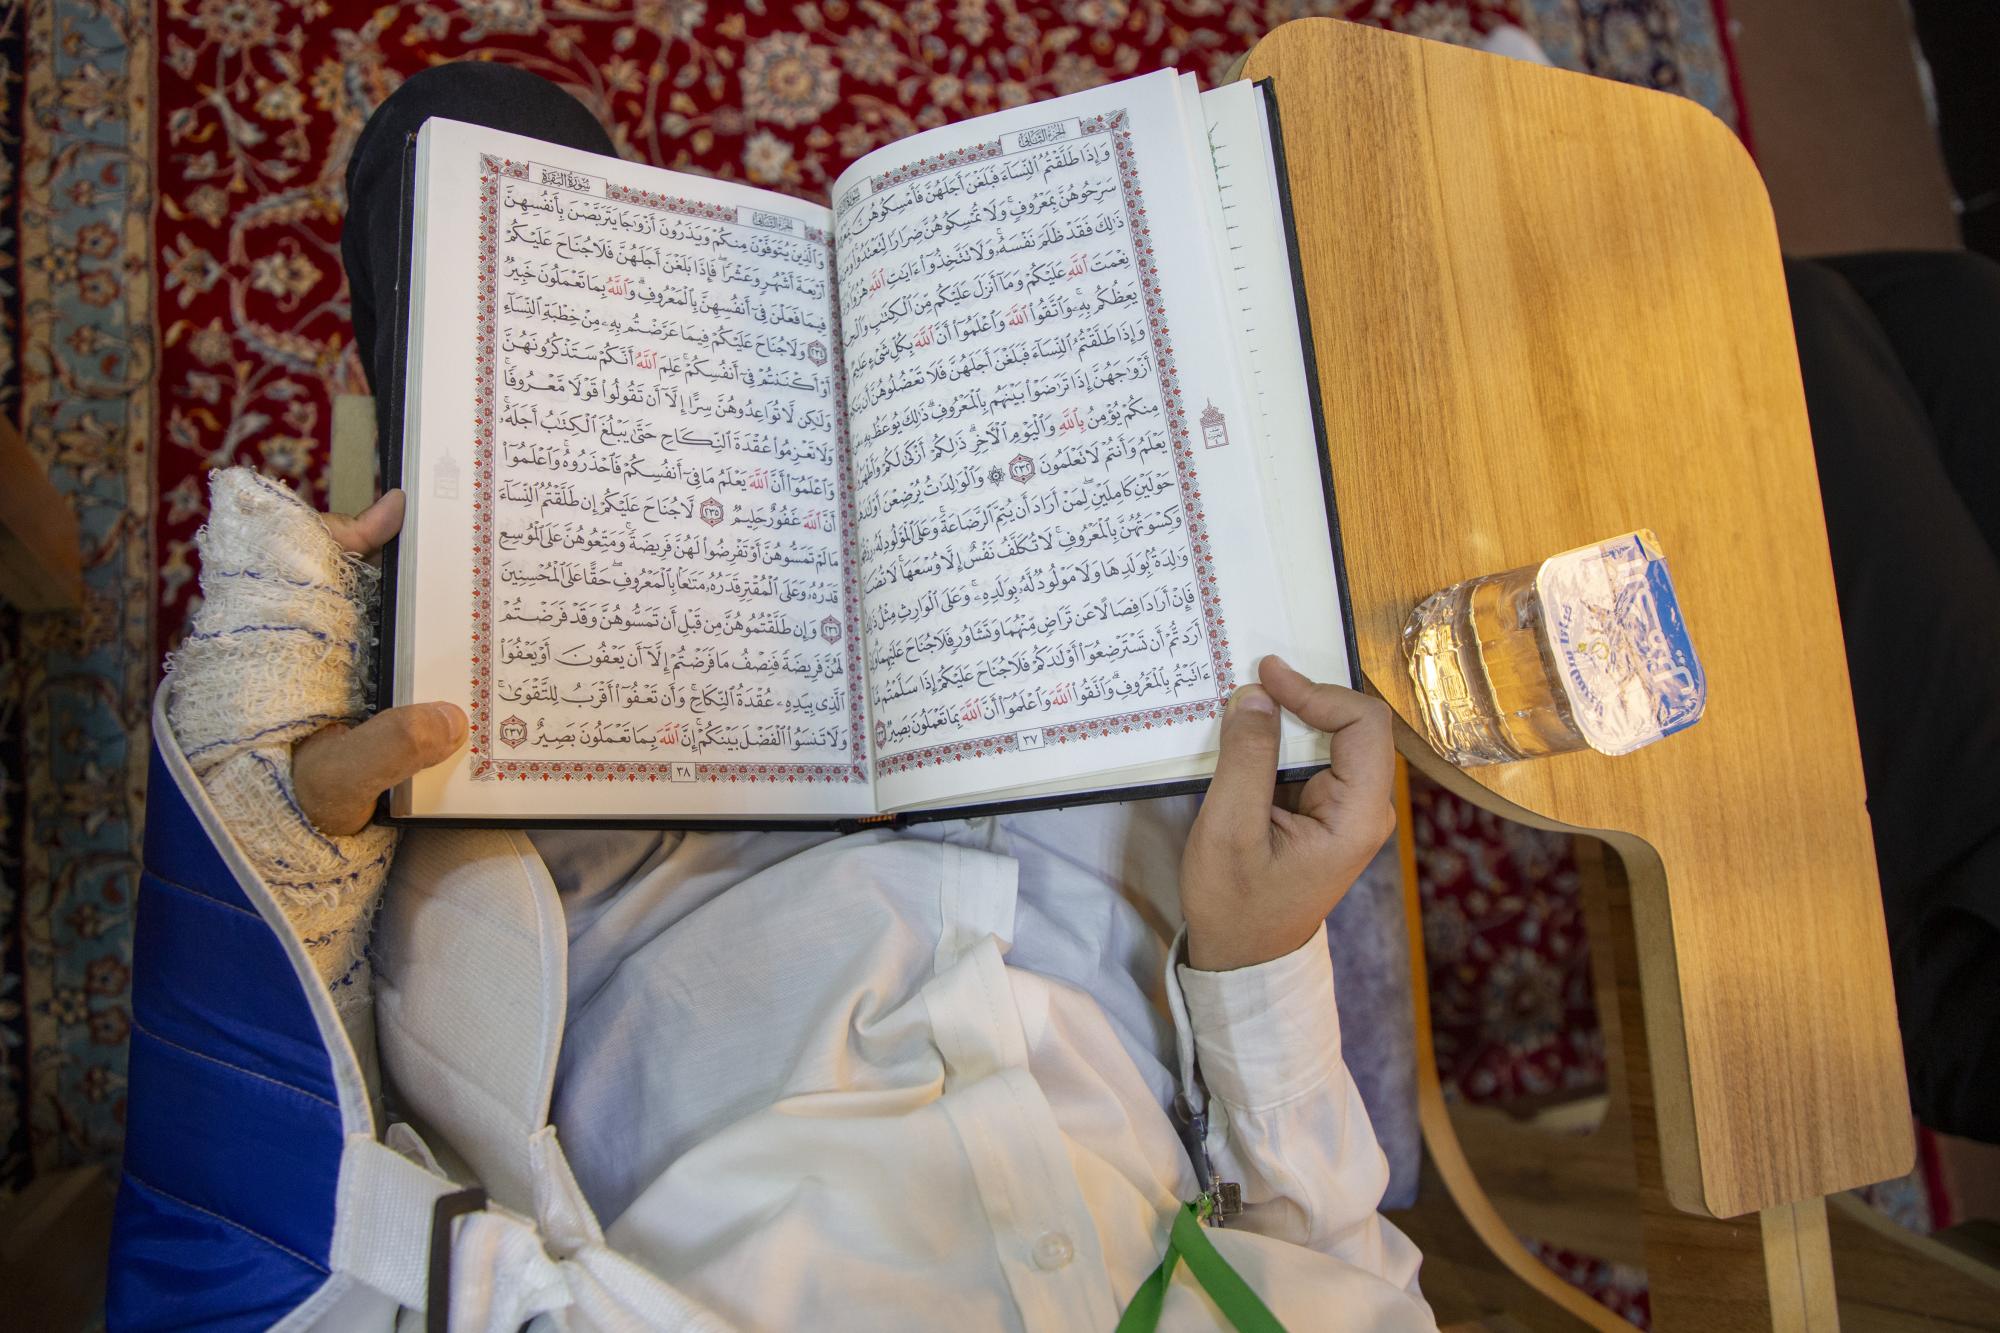 الجزء الثاني
وَإِذَا طَلَّقْتُمُ ٱلنِّسَآءَ فَبَلَغْنَ أَجَلَهُنَّ فَأَمْسِكُوهُنَّ
سَرِّحُوهُنَّ بِمَعْرُوفٍ ۚ وَلَا تُمْسِكُوهُنَّ ضِرَارًا لِّتَعْتَدُوا۟ ۚ
ذَٰلِكَ فَقَدْ ظَلَمَ نَفْسَهُۥ ۚ وَلَا تَتَّخِذُوٓا۟ ءَايَٰتِ ٱللَّهِ هُزُوًا ۚ
نِعْمَتَ ٱللَّهِ عَلَيْكُمْ وَمَآ أَنزَلَ عَلَيْكُم مِّنَ ٱلْكِتَٰبِ
يَعِظُكُم بِهِۦ ۚ وَٱتَّقُوا۟ ٱللَّهَ وَٱعْلَمُوٓا۟ أَنَّ ٱللَّهَ بِكُلِّ شَىْءٍ عَلِيمٌ
وَإِذَا طَلَّقْتُمُ ٱلنِّسَآءَ فَبَلَغْنَ أَجَلَهُنَّ فَلَا تَعْضُلُوهُنَّ أَن
أَزْوَٰجَهُنَّ إِذَا تَرَٰضَوْا۟ بَيْنَهُم بِٱلْمَعْرُوفِ ۗ ذَٰلِكَ يُوعَظُ بِهِۦ
مِنكُمْ يُؤْمِنُ بِٱللَّهِ وَٱلْيَوْمِ ٱلْءَاخِرِ ۗ ذَٰلِكُمْ أَزْكَىٰ لَكُمْ وَأَطْهَرُ
يَعْلَمُ وَأَنتُمْ لَا تَعْلَمُونَ ٢٣٢ ۞ وَٱلْوَٰلِدَٰتُ يُرْضِعْنَ
حَوْلَيْنِ كَامِلَيْنِ ۖ لِمَنْ أَرَادَ أَن يُتِمَّ ٱلرَّضَاعَةَ ۚ وَعَلَى ٱلْمَوْلُودِ لَهُۥ
وَكِسْوَتُهُنَّ بِٱلْمَعْرُوفِ ۚ لَا تُكَلَّفُ نَفْسٌ إِلَّا وُسْعَهَا ۚ لَا
وَٰلِدَةٌۢ بِوَلَدِهَا وَلَا مَوْلُودٌ لَّهُۥ بِوَلَدِهِۦ ۚ وَعَلَى ٱلْوَارِثِ مِثْلُ
فَإِنْ أَرَادَا فِصَالًا عَن تَرَاضٍ مِّنْهُمَا وَتَشَاوُرٍ فَلَا جُنَاحَ عَلَيْهِمَا ۗ
أَرَدتُّمْ أَن تَسْتَرْضِعُوٓا۟ أَوْلَٰدَكُمْ فَلَا جُنَاحَ عَلَيْكُمْ إِذَا سَلَّمْتُم مَّآ
ءَاتَيْتُم بِٱلْمَعْرُوفِ ۗ وَٱتَّقُوا۟ ٱللَّهَ وَٱعْلَمُوٓا۟ أَنَّ ٱللَّهَ بِمَا تَعْمَلُونَ بَصِيرٌ
٣٧
الجزء الثاني
سورة البقرة
وَٱلَّذِينَ يُتَوَفَّوْنَ مِنكُمْ وَيَذَرُونَ أَزْوَٰجًا يَتَرَبَّصْنَ بِأَنفُسِهِنَّ
أَرْبَعَةَ أَشْهُرٍ وَعَشْرًا ۖ فَإِذَا بَلَغْنَ أَجَلَهُنَّ فَلَا جُنَاحَ عَلَيْكُمْ
فِيمَا فَعَلْنَ فِىٓ أَنفُسِهِنَّ بِٱلْمَعْرُوفِ ۗ وَٱللَّهُ بِمَا تَعْمَلُونَ خَبِيرٌ
٢٣٤ وَلَا جُنَاحَ عَلَيْكُمْ فِيمَا عَرَّضْتُم بِهِۦ مِنْ خِطْبَةِ ٱلنِّسَآءِ
أَوْ أَكْنَنتُمْ فِىٓ أَنفُسِكُمْ ۚ عَلِمَ ٱللَّهُ أَنَّكُمْ سَتَذْكُرُونَهُنَّ
وَلَٰكِن لَّا تُوَاعِدُوهُنَّ سِرًّا إِلَّآ أَن تَقُولُوا۟ قَوْلًا مَّعْرُوفًا ۚ
وَلَا تَعْزِمُوا۟ عُقْدَةَ ٱلنِّكَاحِ حَتَّىٰ يَبْلُغَ ٱلْكِتَٰبُ أَجَلَهُۥ ۚ
وَٱعْلَمُوٓا۟ أَنَّ ٱللَّهَ يَعْلَمُ مَا فِىٓ أَنفُسِكُمْ فَٱحْذَرُوهُ ۚ وَٱعْلَمُوٓا۟
أَنَّ ٱللَّهَ غَفُورٌ حَلِيمٌ ٢٣٥ لَّا جُنَاحَ عَلَيْكُمْ إِن طَلَّقْتُمُ ٱلنِّسَآءَ
مَا لَمْ تَمَسُّوهُنَّ أَوْ تَفْرِضُوا۟ لَهُنَّ فَرِيضَةً ۚ وَمَتِّعُوهُنَّ عَلَى ٱلْمُوسِعِ
قَدَرُهُۥ وَعَلَى ٱلْمُقْتِرِ قَدَرُهُۥ مَتَٰعًۢا بِٱلْمَعْرُوفِ ۖ حَقًّا عَلَى ٱلْمُحْسِنِينَ
٢٣٦ وَإِن طَلَّقْتُمُوهُنَّ مِن قَبْلِ أَن تَمَسُّوهُنَّ وَقَدْ فَرَضْتُمْ
لَهُنَّ فَرِيضَةً فَنِصْفُ مَا فَرَضْتُمْ إِلَّآ أَن يَعْفُونَ أَوْ يَعْفُوَا۟
ٱلَّذِى بِيَدِهِۦ عُقْدَةُ ٱلنِّكَاحِ ۚ وَأَن تَعْفُوٓا۟ أَقْرَبُ لِلتَّقْوَىٰ ۚ
وَلَا تَنسَوُا۟ ٱلْفَضْلَ بَيْنَكُمْ ۚ إِنَّ ٱللَّهَ بِمَا تَعْمَلُونَ بَصِيرٌ ٢٣٧
٣٨